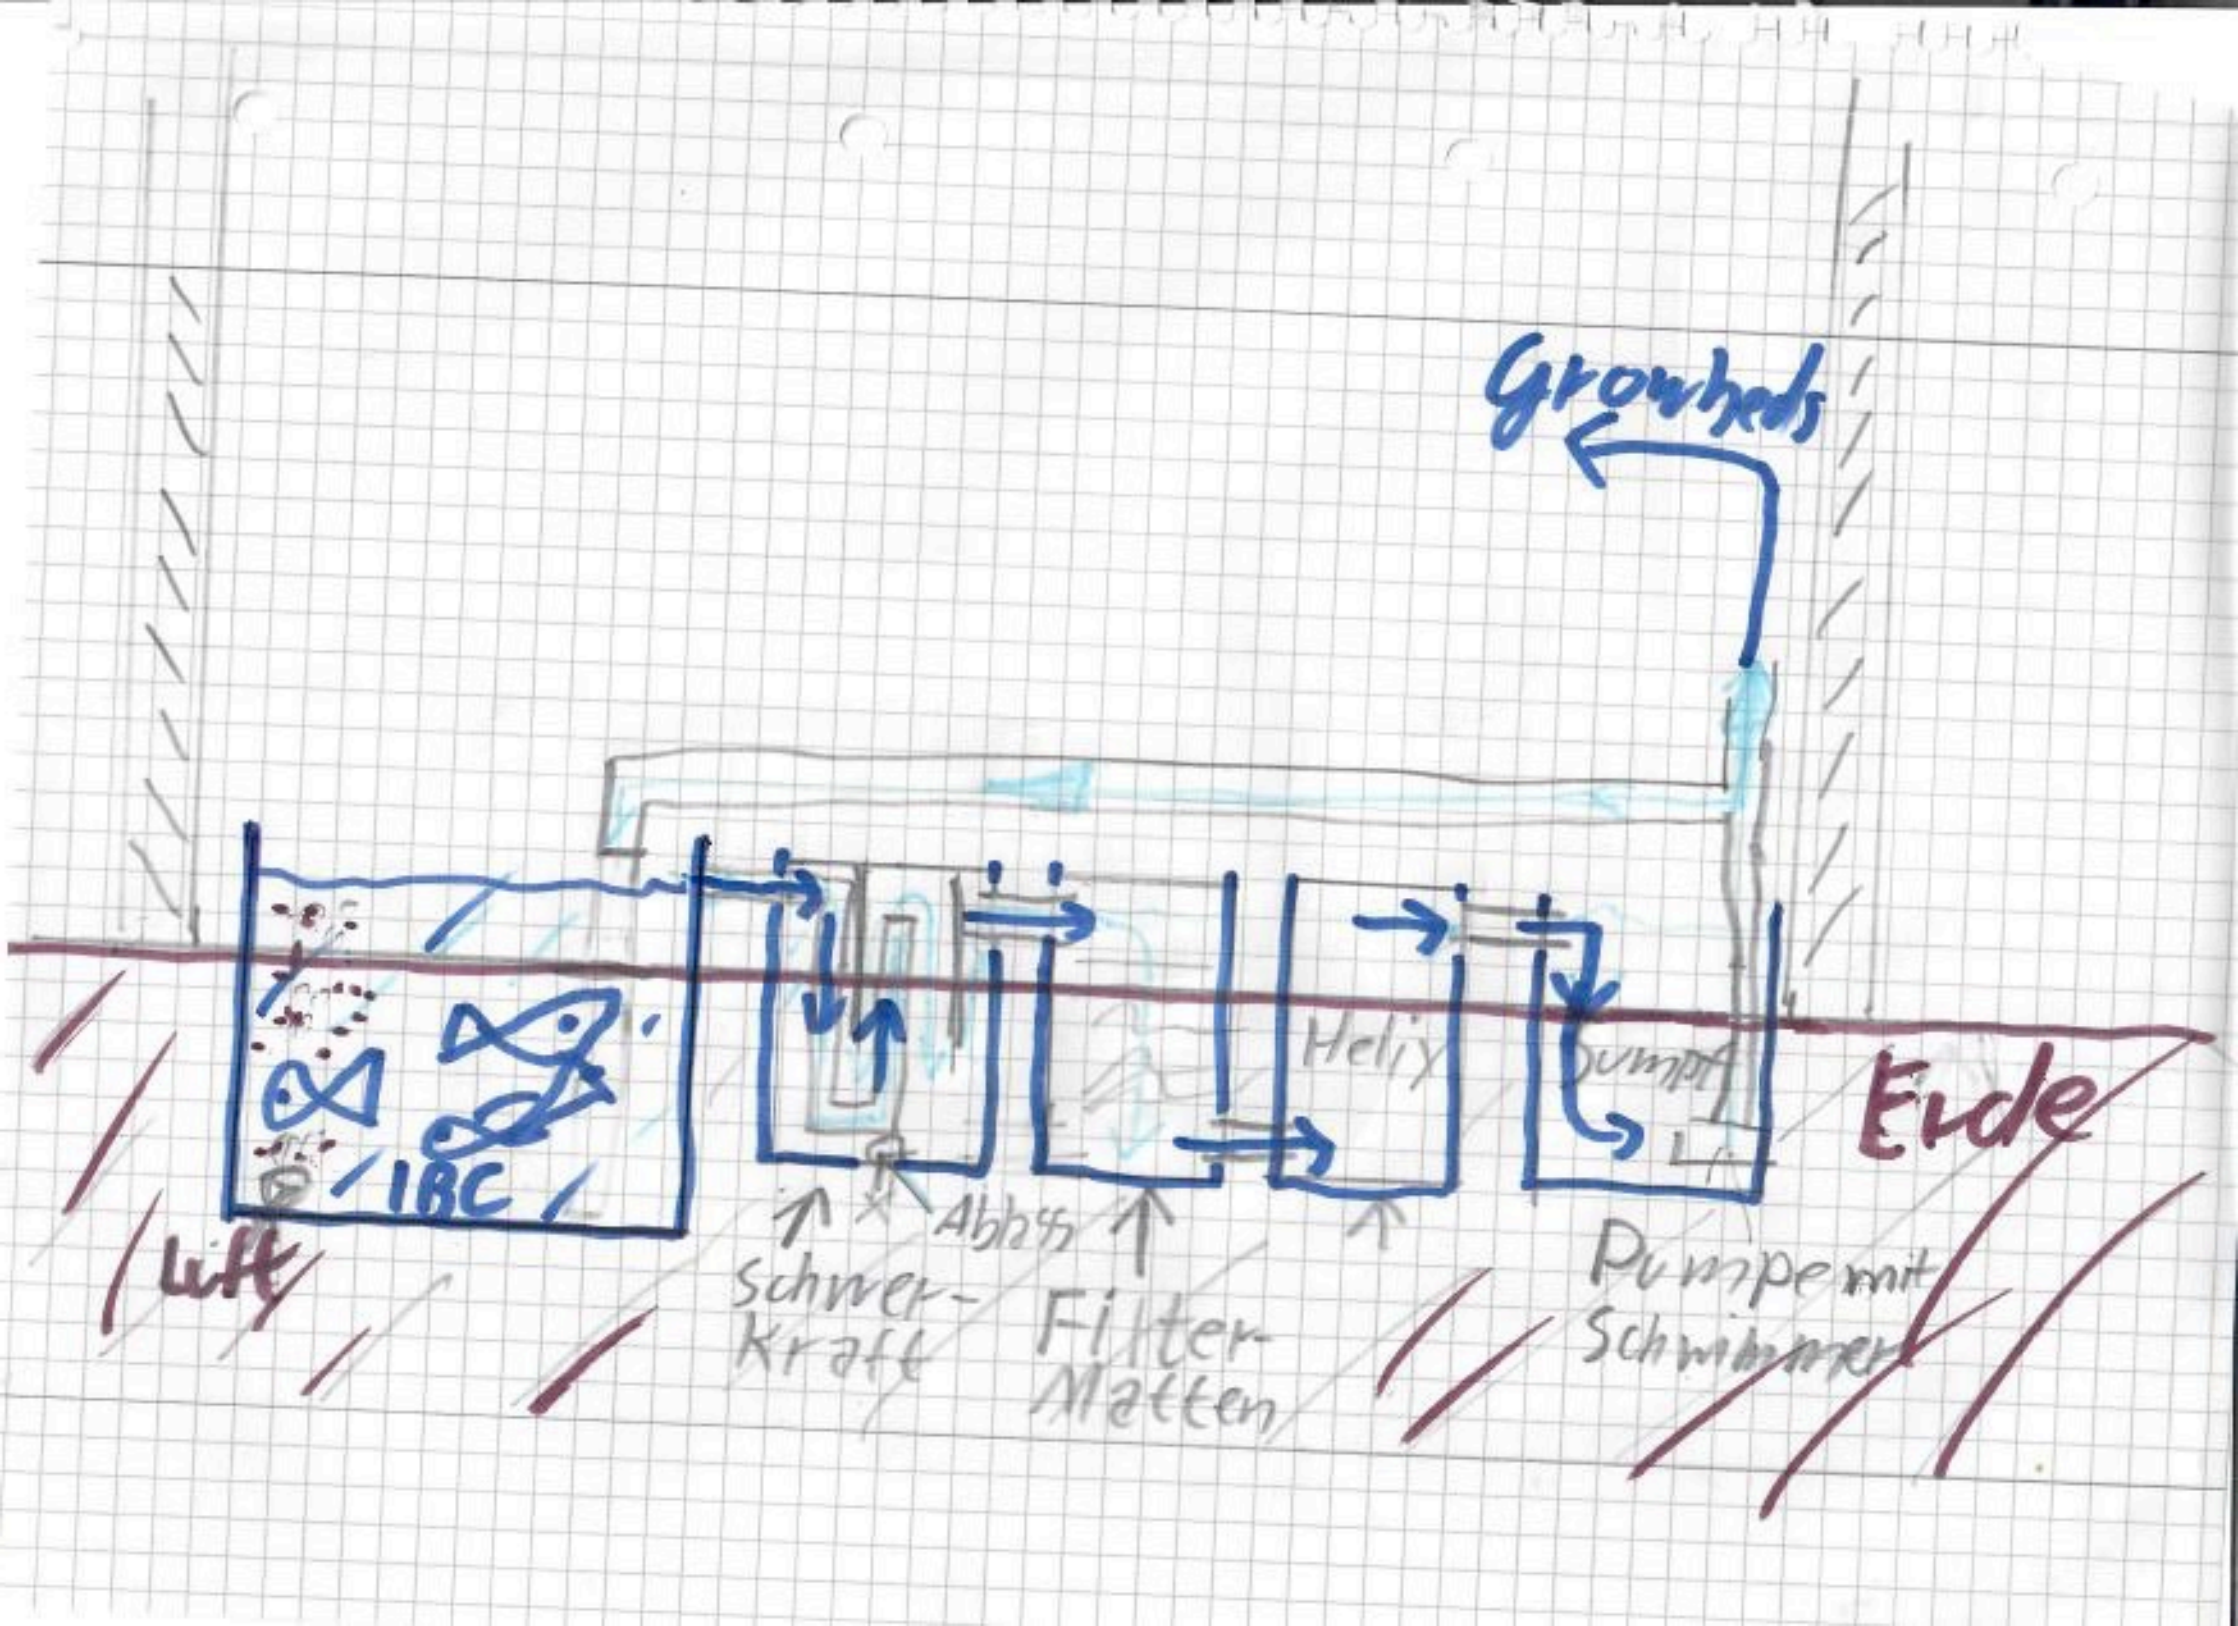 Growbeds
Helix
Sumpf
Erde
IBC
Luft
Schwer-
Kraft
Filter-
Matten
Pumpe mit
Schwimmer